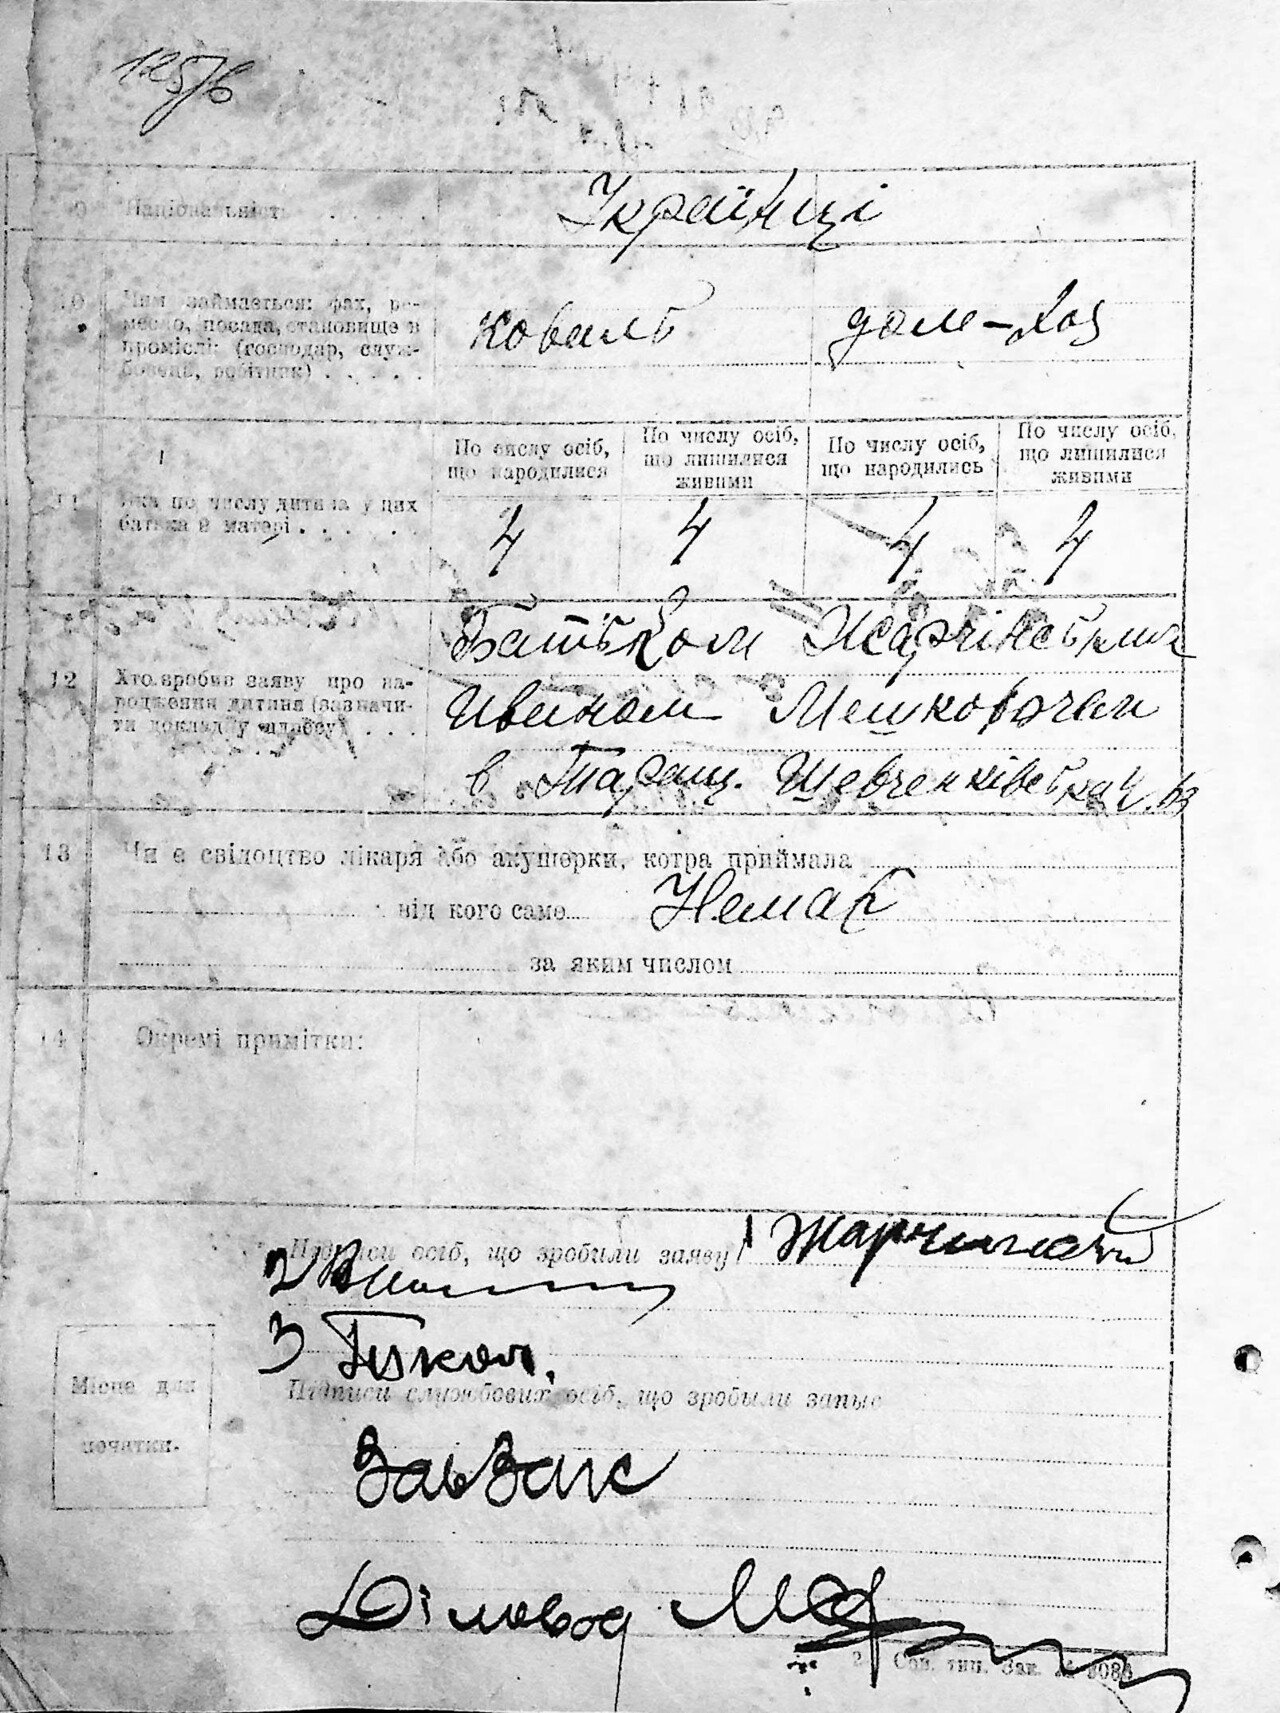 125/6
9 Національність . . . . . . Українці
10 Чим займається: фах, ре-
месло, посада, становище в
проміслі: (господар, служ-
бовець, робітник) . . . . .
коваль
дом-хоз
По числу осіб, що народилися
По числу осіб, що лишилися живими
По числу осіб, що народились
По числу осіб, що лишилися живими
11 Яка по числу дитина у цих
батька й матері . . . . . .
4 4 4 4
12 Хто зробив заяву про на-
родження дитини (зазначи-
ти докладну адресу) . . .
Батьком Жарчінським
Иваном
в Таращ. Шевченківська ч. 63
13 Чи є свідоцтво лікаря або акушерки, котра приймала
від кого саме Немає
за яким числом
14 Окремі примітки:
Підписи осіб, що зробили заяву 1
2
3
Місце для
печатки.
Підписи службових осіб, що зробыли запыс
ЗавЗагс
Діловод
Сов. тип. Зак. №